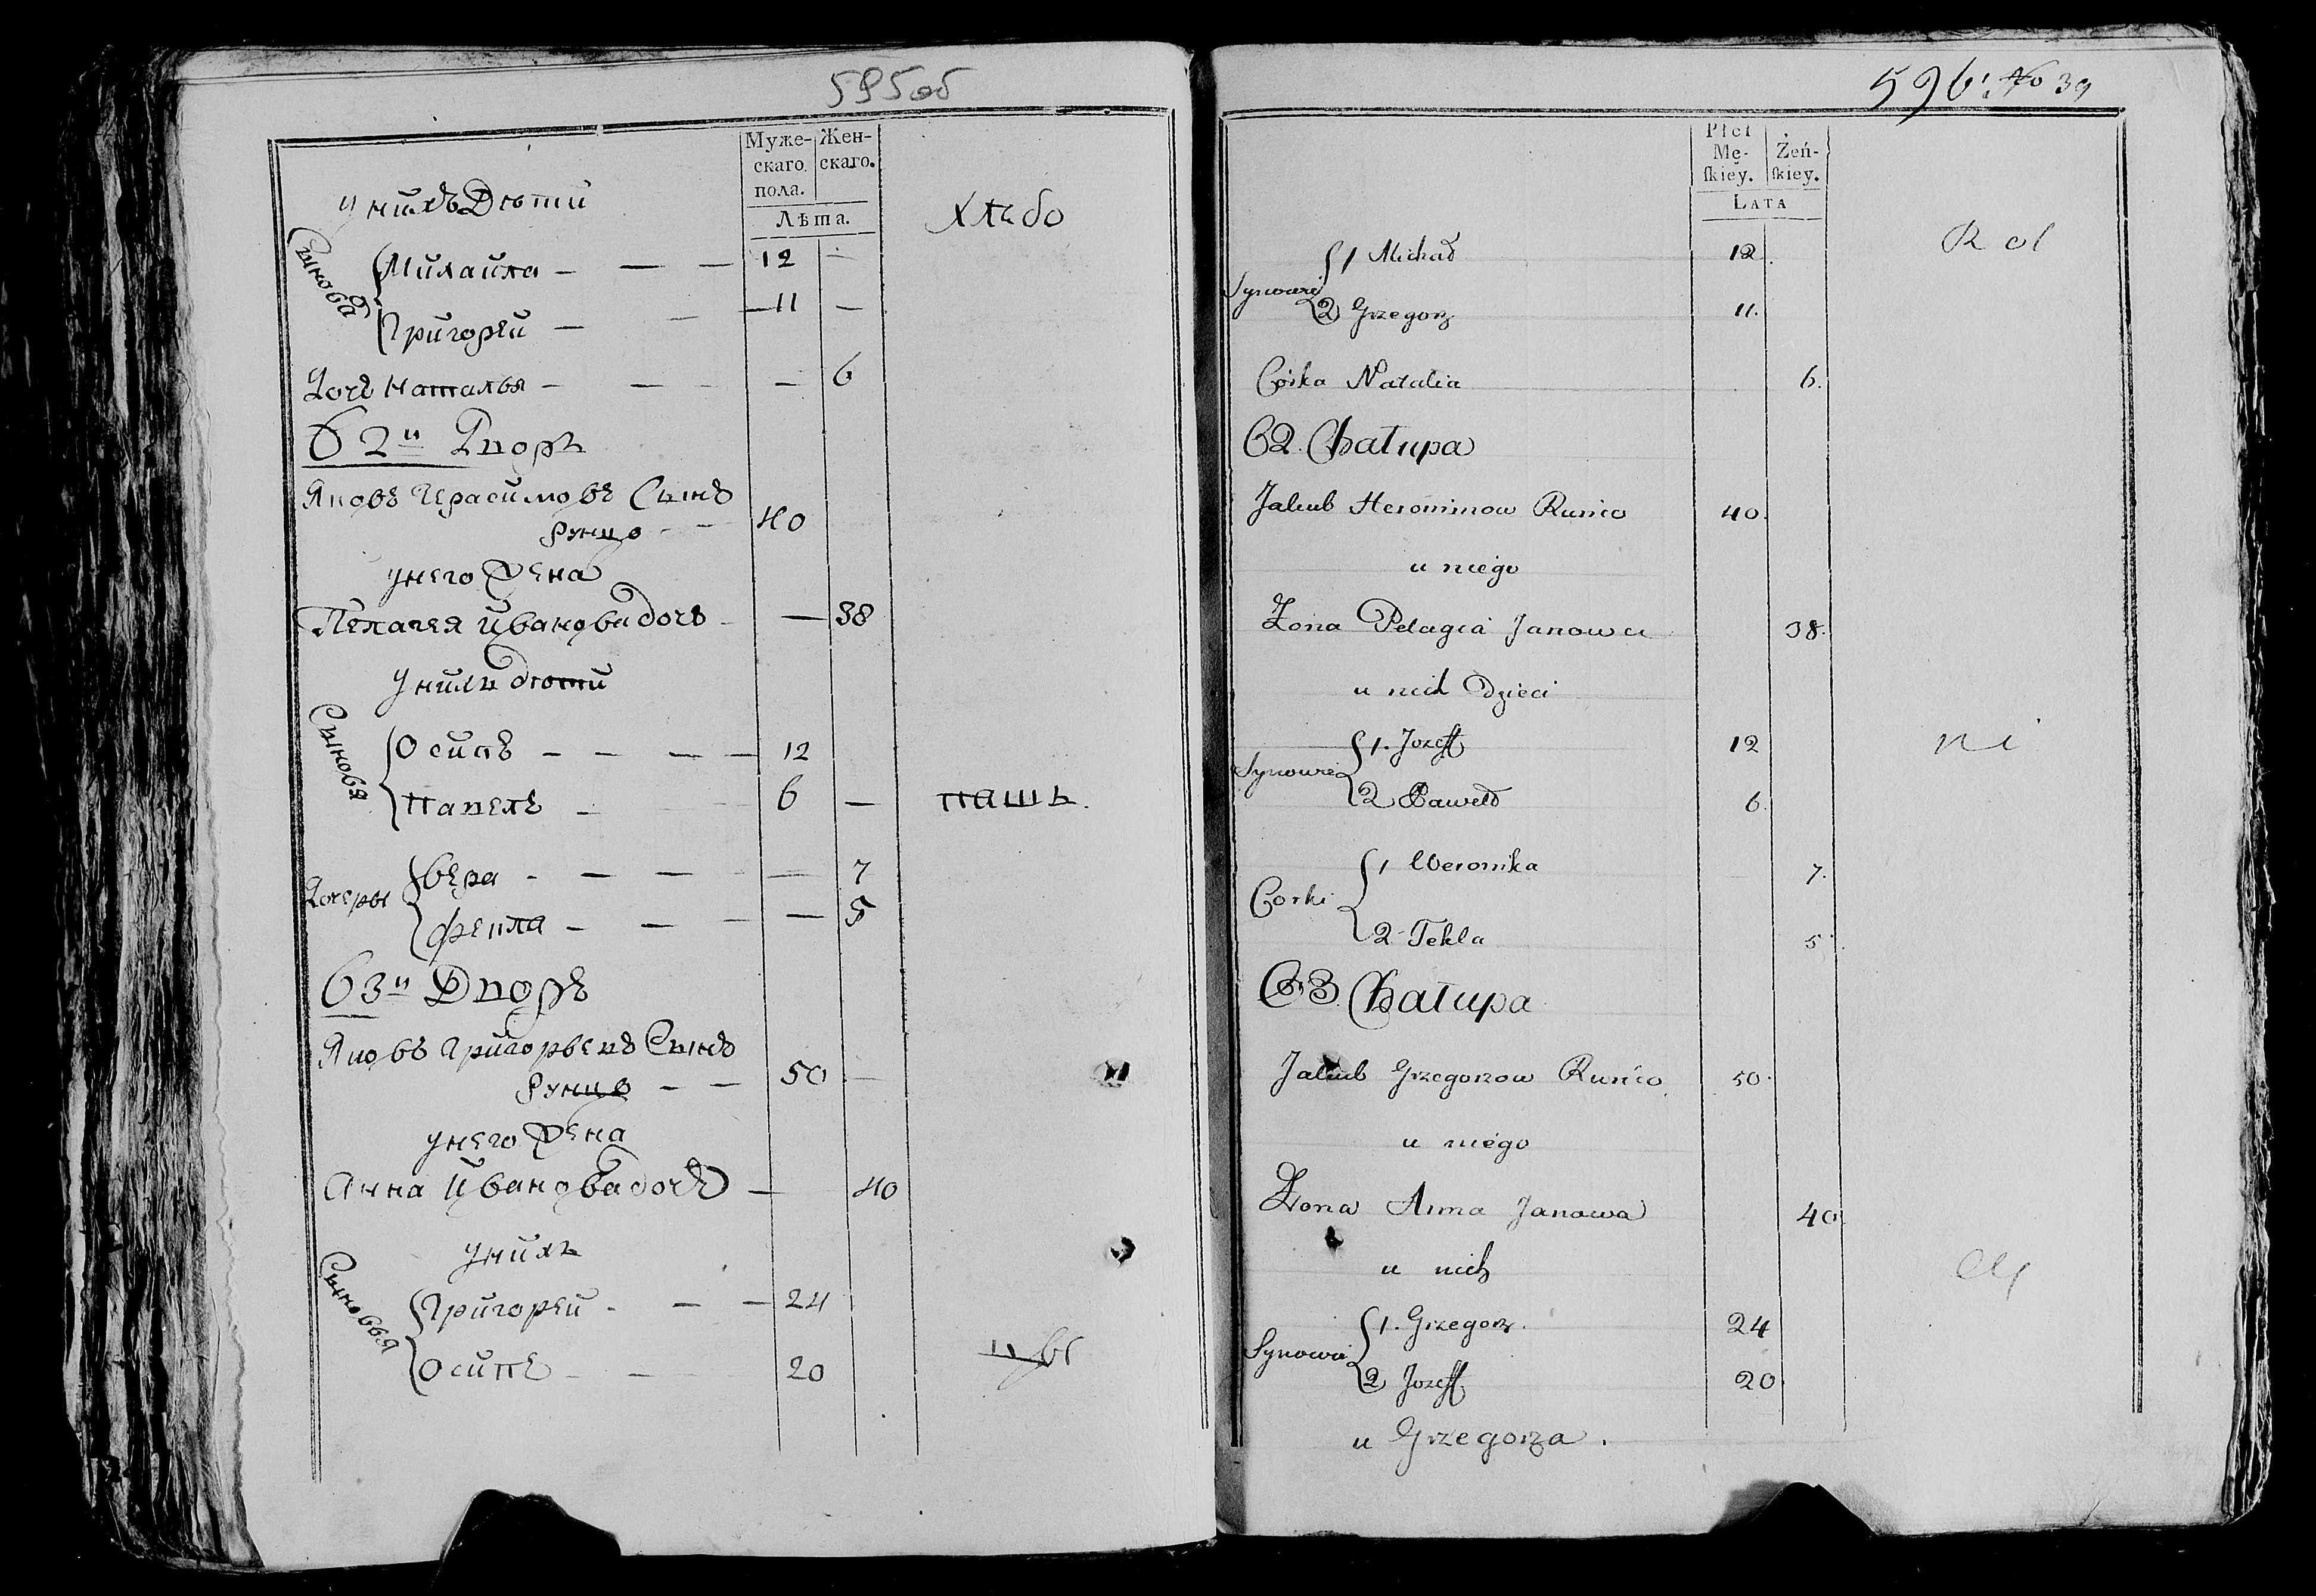 595об
Муже- Жен-
скаго скаго.
пола.
Лѣта.
У нихъ Дѣти
Хлѣбо
Сыновя
Михайла — — — 12 —
Григорей — — — 11 —
Дочь Наталья — — — — 6
62й Дворъ
Яковъ Герасимовъ Сынъ
Рунцо — — 40
у него Жена
Пелагея Иванова дочь — — 38
У нихъ дѣти
Сыновя
Осипъ — — — — 12
Павелъ — 6 —
пашъ.
Дочеры
Вера — — — — — 7
Фекла — — — — 5
63й Дворъ
Яковъ Григорьевъ Сынъ
Рунцо — — 50 —
у него Жена
Анна Иванова дочь — 40
У нихъ
Сыновья
Григорей — — — 24
Осипъ — — 20
цы
596. No 39
Płci
Mę- Żeń-
ſkiey. ſkiey.
LATA
Rol
Synowie
1 Michał 12.
2 Grzegorz 11.
Corka Natalia 6.
62. Chałupa
Jakub Heronimow Runco 40.
u niego
Zona Pelagia Janowa 38.
u nich Dzieci
Synowie
1. Jozeff 12
2 Paweł 6.
ni
Corki
1 Weronika 7.
2 Tekla 5.
63. Chałupa
Jakub Grzegorzow Runco 50.
u niego
Zona Anna Janowa 40
u nich
cy
Synowie
1. Grzegorz. 24
2 Jozeff 20
u Grzegorza.